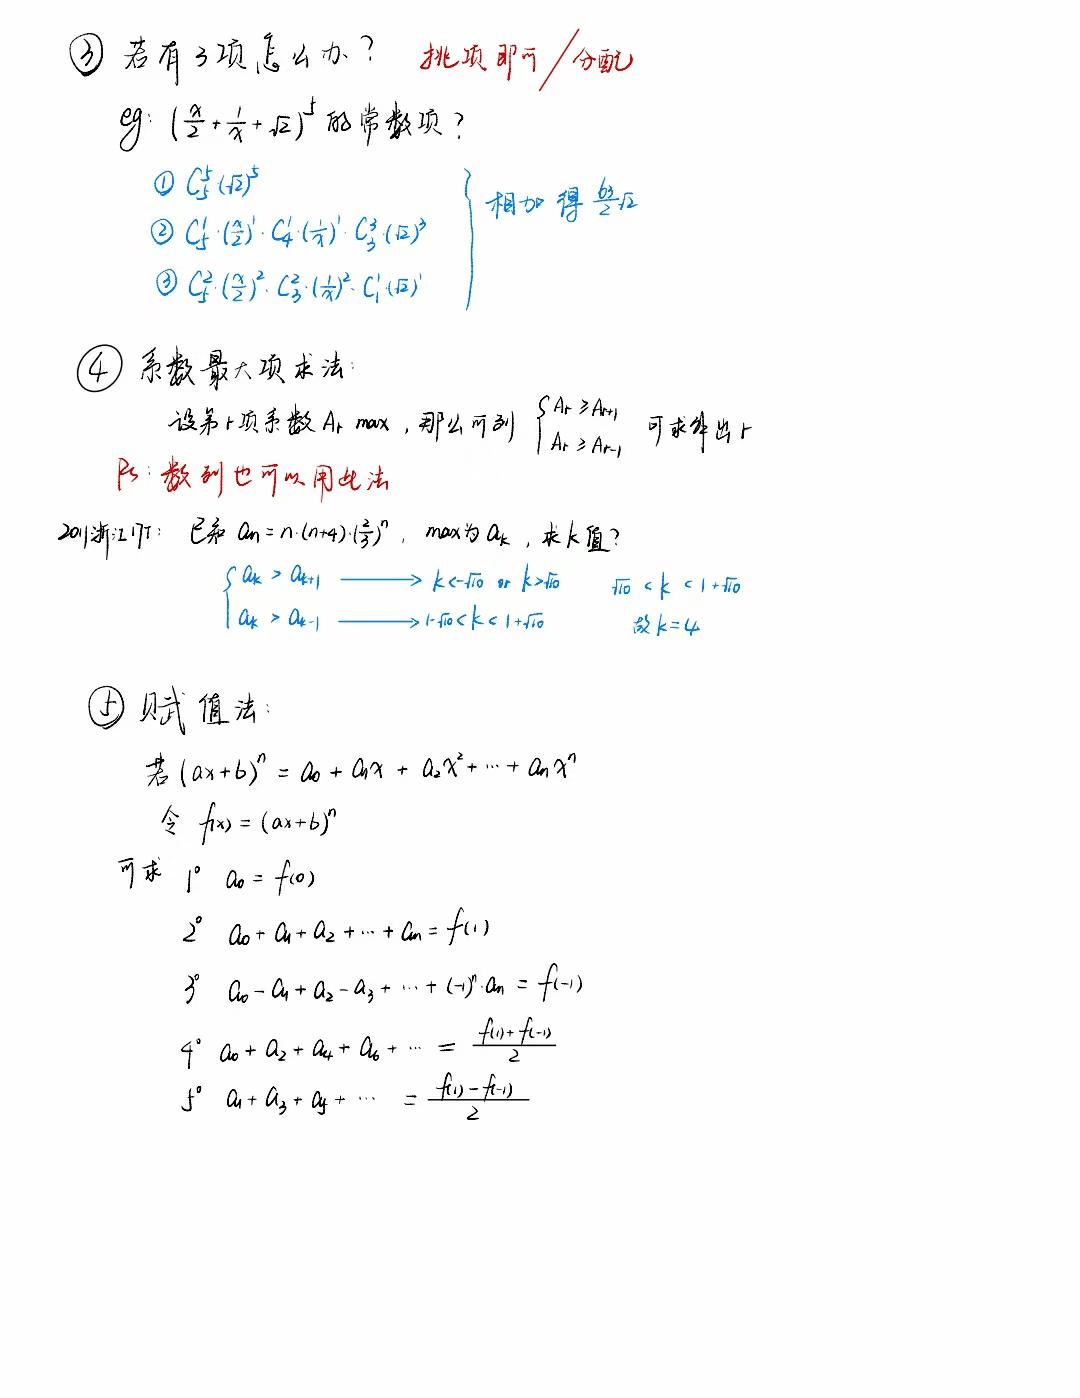 ③ 若有3项怎么办？ 挑项即可/分配
eg: (x/2 + 1/x + √2)^5 的常数项？
① C_5^5 (√2)^5
② C_5^1·(x/2)^1·C_4^1·(1/x)^1·C_3^3·(√2)^3
③ C_5^2·(x/2)^2·C_3^2·(1/x)^2·C_1^1·(√2)^1
相加得 63/2 √2
④ 系数最大项求法：
设第r项系数 A_r max，那么可列 { A_r ≥ A_{r+1} A_r ≥ A_{r-1} 可求解出r
Ps：数列也可以用此法
2011浙江17T： 已知 a_n = n·(n+4)·(2/3)^n，max为a_k，求k值？
{ a_k > a_{k+1} → k<-√10 or k>√10 √10 < k < 1+√10
a_k > a_{k-1} → 1-√10<k<1+√10 故k=4
⑤ 赋值法：
若 (ax+b)^n = a_0 + a_1x + a_2x^2 + ⋯ + a_nx^n
令 f(x) = (ax+b)^n
可求 1° a_0 = f(0)
2° a_0 + a_1 + a_2 + ⋯ + a_n = f(1)
3° a_0 - a_1 + a_2 - a_3 + ⋯ + (-1)^n·a_n = f(-1)
4° a_0 + a_2 + a_4 + a_6 + ⋯ = (f(1)+f(-1))/2
5° a_1 + a_3 + a_5 + ⋯ = (f(1)-f(-1))/2